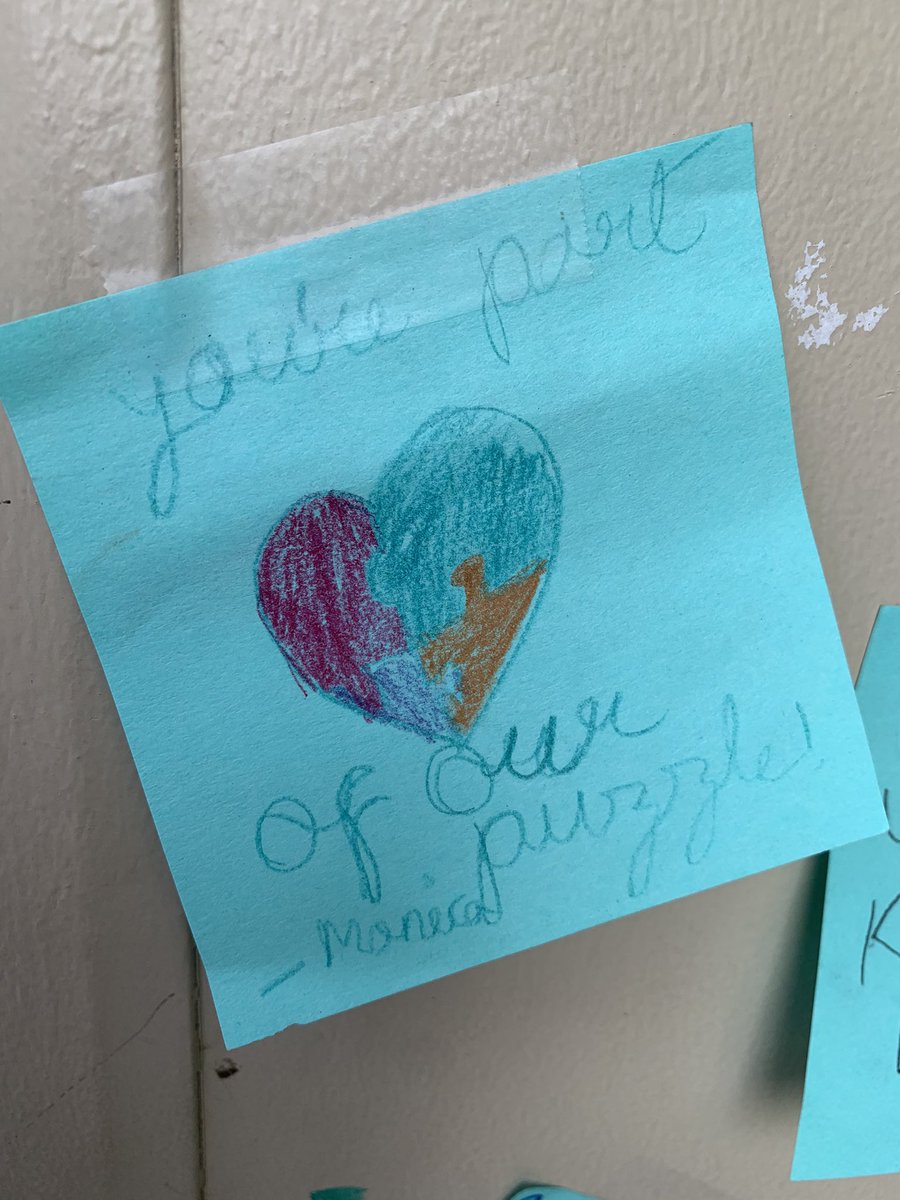 you're part
of our
puzzle!
- Monica
K